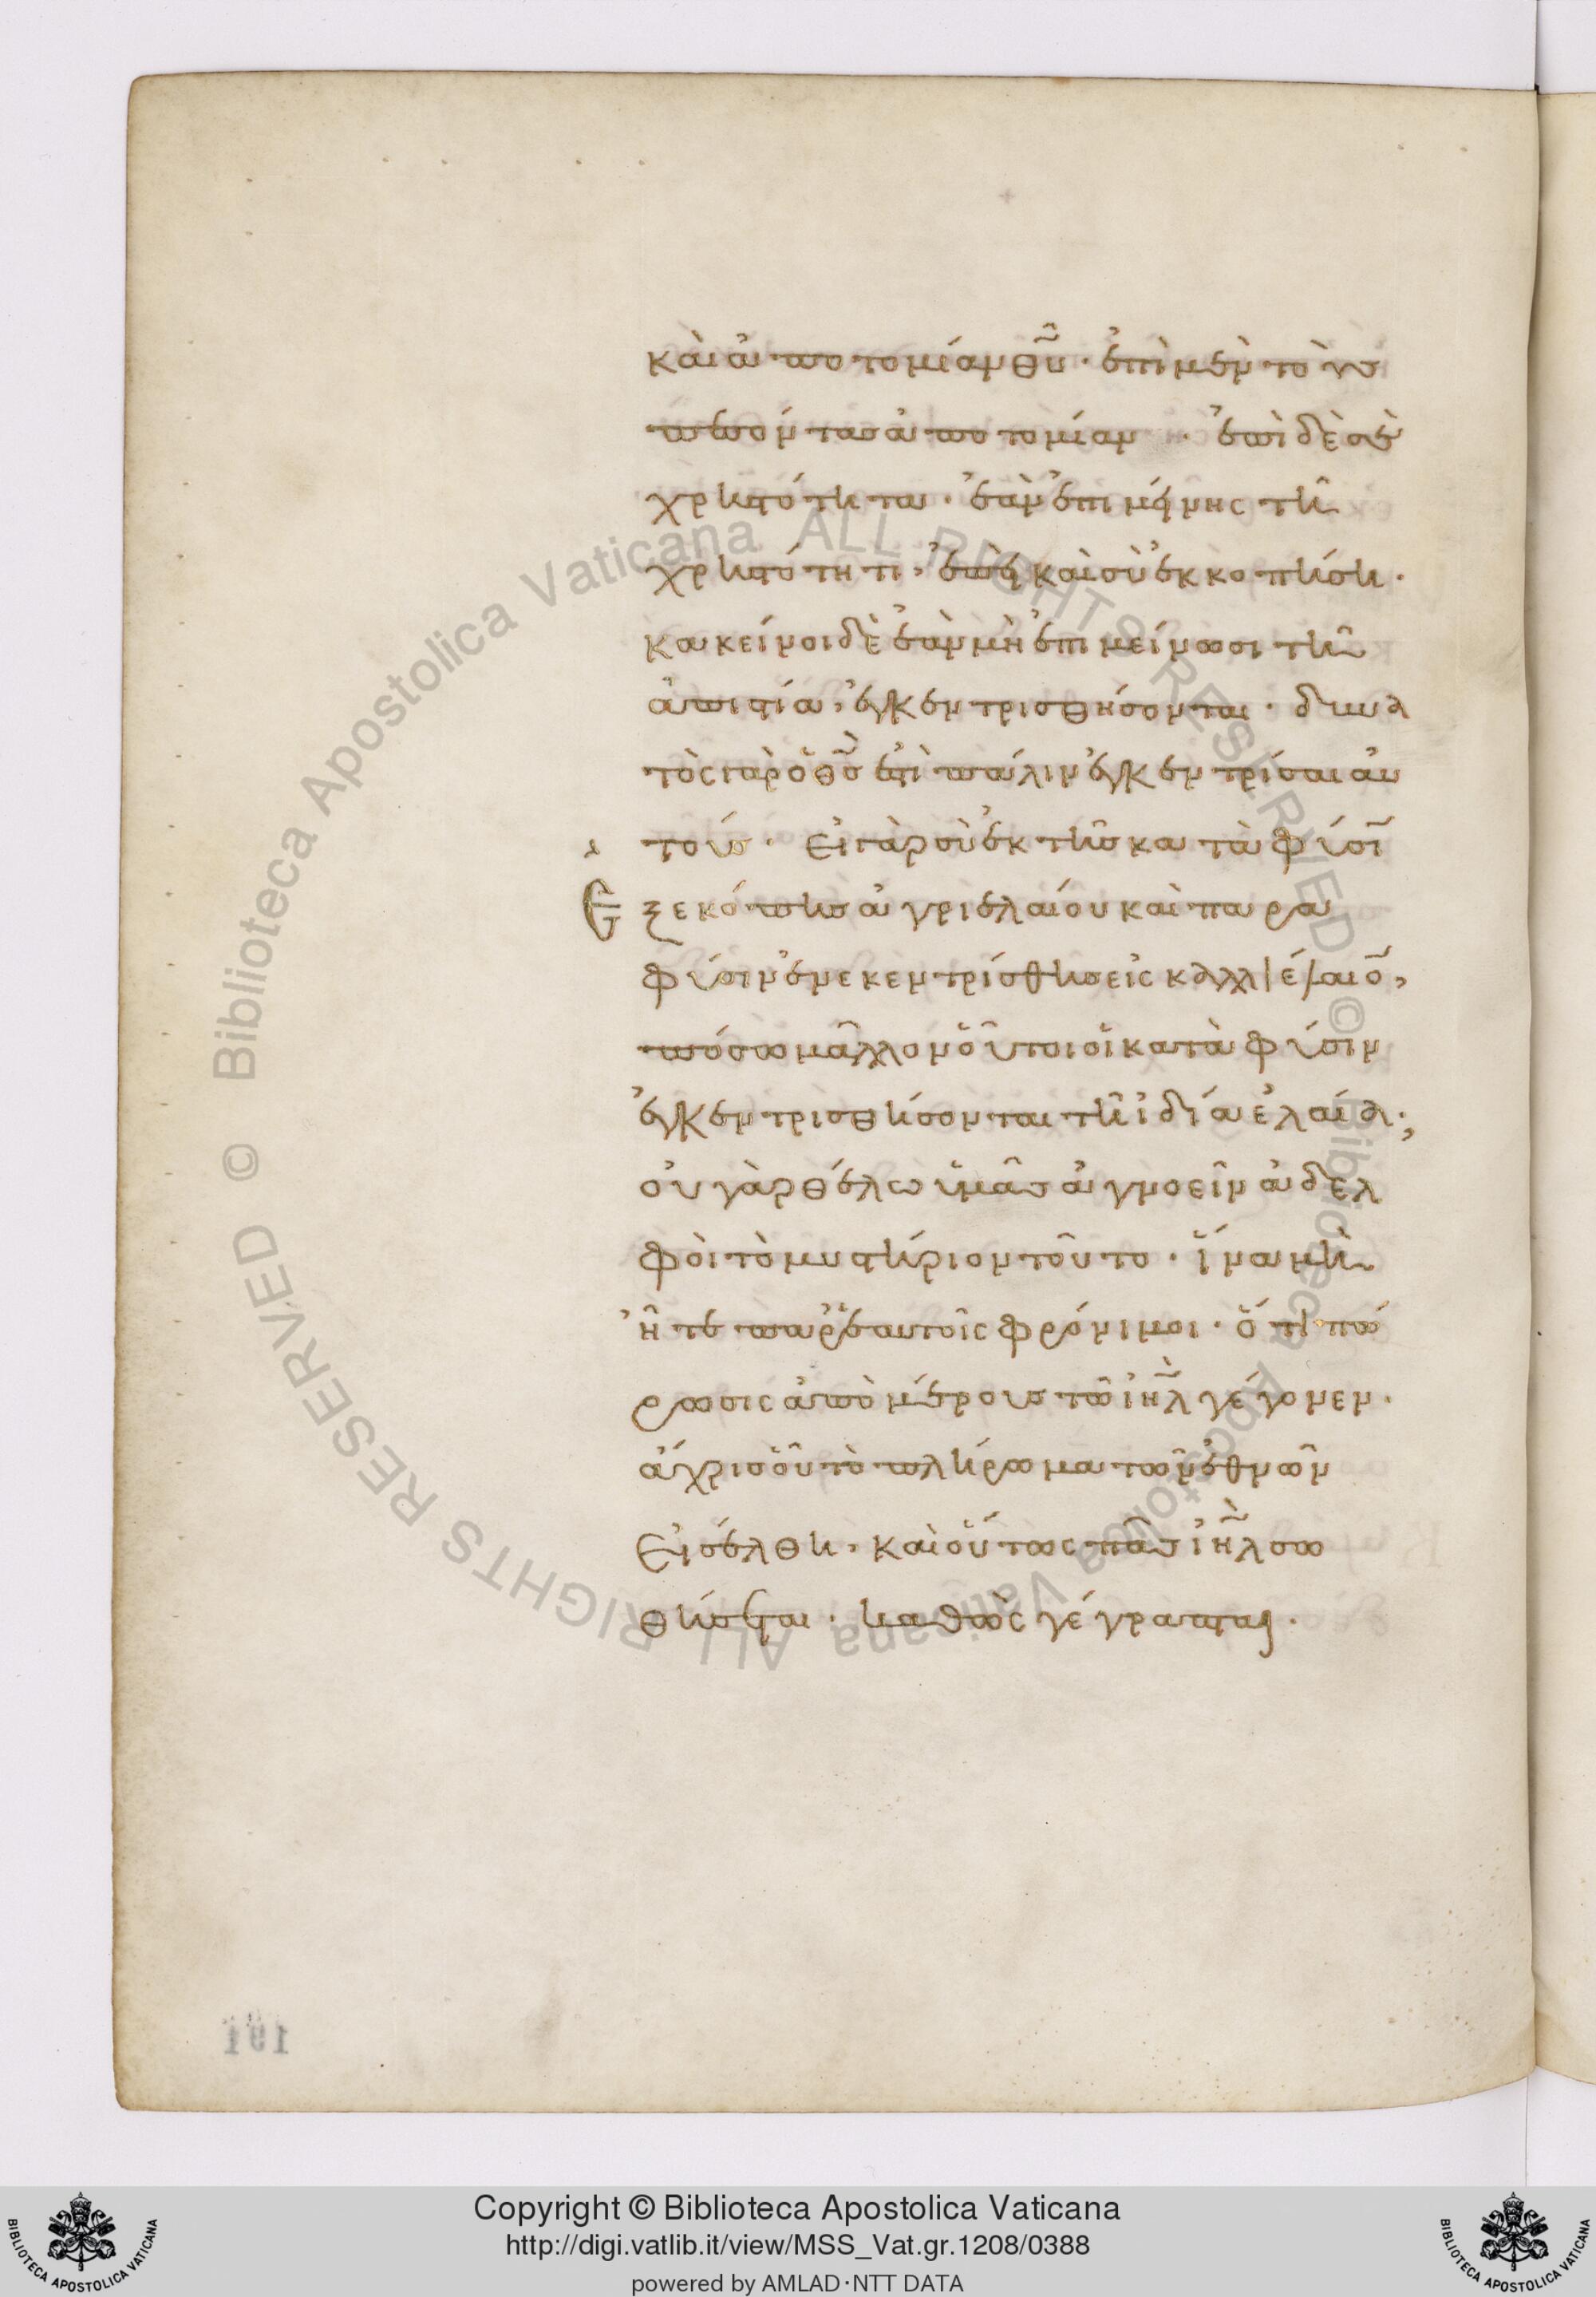 καὶ ἀποτομίαν θ̅υ̅· ἐπὶ μὲν τοὺς
πεσόντας ἀποτομίαν · ἐπὶ δὲ σὲ
χρηστότητα· ἐὰν ἐπιμένης τῆ
χρηστότητι, ἐπεὶ καὶ σὺ ἐκκοπήση·
κακεῖνοι δὲ ἐὰν μὴ ἐπιμείνωσι τῆ
ἀπιστία, ἐγκεντρισθήσονται· δυνα
τὸς γὰρ ὁ θ̅ς̅ ἐστὶ πάλιν ἐγκεντρίσαι αὐ
τούς· Εἰ γὰρ σὺ ἐκ τῆς κατὰ φύσι̅
Ἐξεκόπης ἀγριελαίου καὶ παρὰ
φύσιν ἐνεκεντρίσθης εἰς καλλιέλαιο̅,
πόσω μᾶλλον οὗτοι οἱ κατὰ φύσιν
ἐγκεντρισθήσονται τῆ ἰδία ἐλαία;
οὐ γὰρ θέλω ὑμᾶς ἀγνοεῖν ἀδελ
φοὶ τὸ μυστήριον τοῦτο· ἵνα μὴ
ἦτε παρ' ἑαυτοῖς φρόνιμοι· ὅτι πώ
ρωσις ἀπὸ μέρους τῶ ἰ̅η̅λ̅ γέγονεν·
ἄχρις οὗ τὸ πλήρωμα τῶν ἐθνῶν
Εἰσέλθη, καὶ οὕτως πᾶς ἰ̅η̅λ̅ σω
θήσεται· καθὼς γέγραπται·
191
Copyright © Biblioteca Apostolica Vaticana
http://digi.vatlib.it/view/MSS_Vat.gr.1208/0388
powered by AMLAD·NTT DATA
BIBLIOTECA APOSTOLICA VATICANA
BIBLIOTECA APOSTOLICA VATICANA
© Biblioteca Apostolica Vaticana ALL RIGHTS RESERVED © Biblioteca Apostolica Vaticana ALL RIGHTS RESERVED